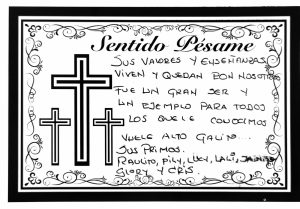 Sentido Pésame
SUS VALORES Y ENSEÑANZAS
VIVEN Y QUEDAN CON NOSOTROS
FUE UN GRAN SER Y
UN EJEMPLO PARA TODOS
LOS QUE LE CONOCIMOS
VUELE ALTO GALILO..
SUS PRIMOS.
RAULITO, PILY, LUCY, LALI,
GLORY Y CRIS.